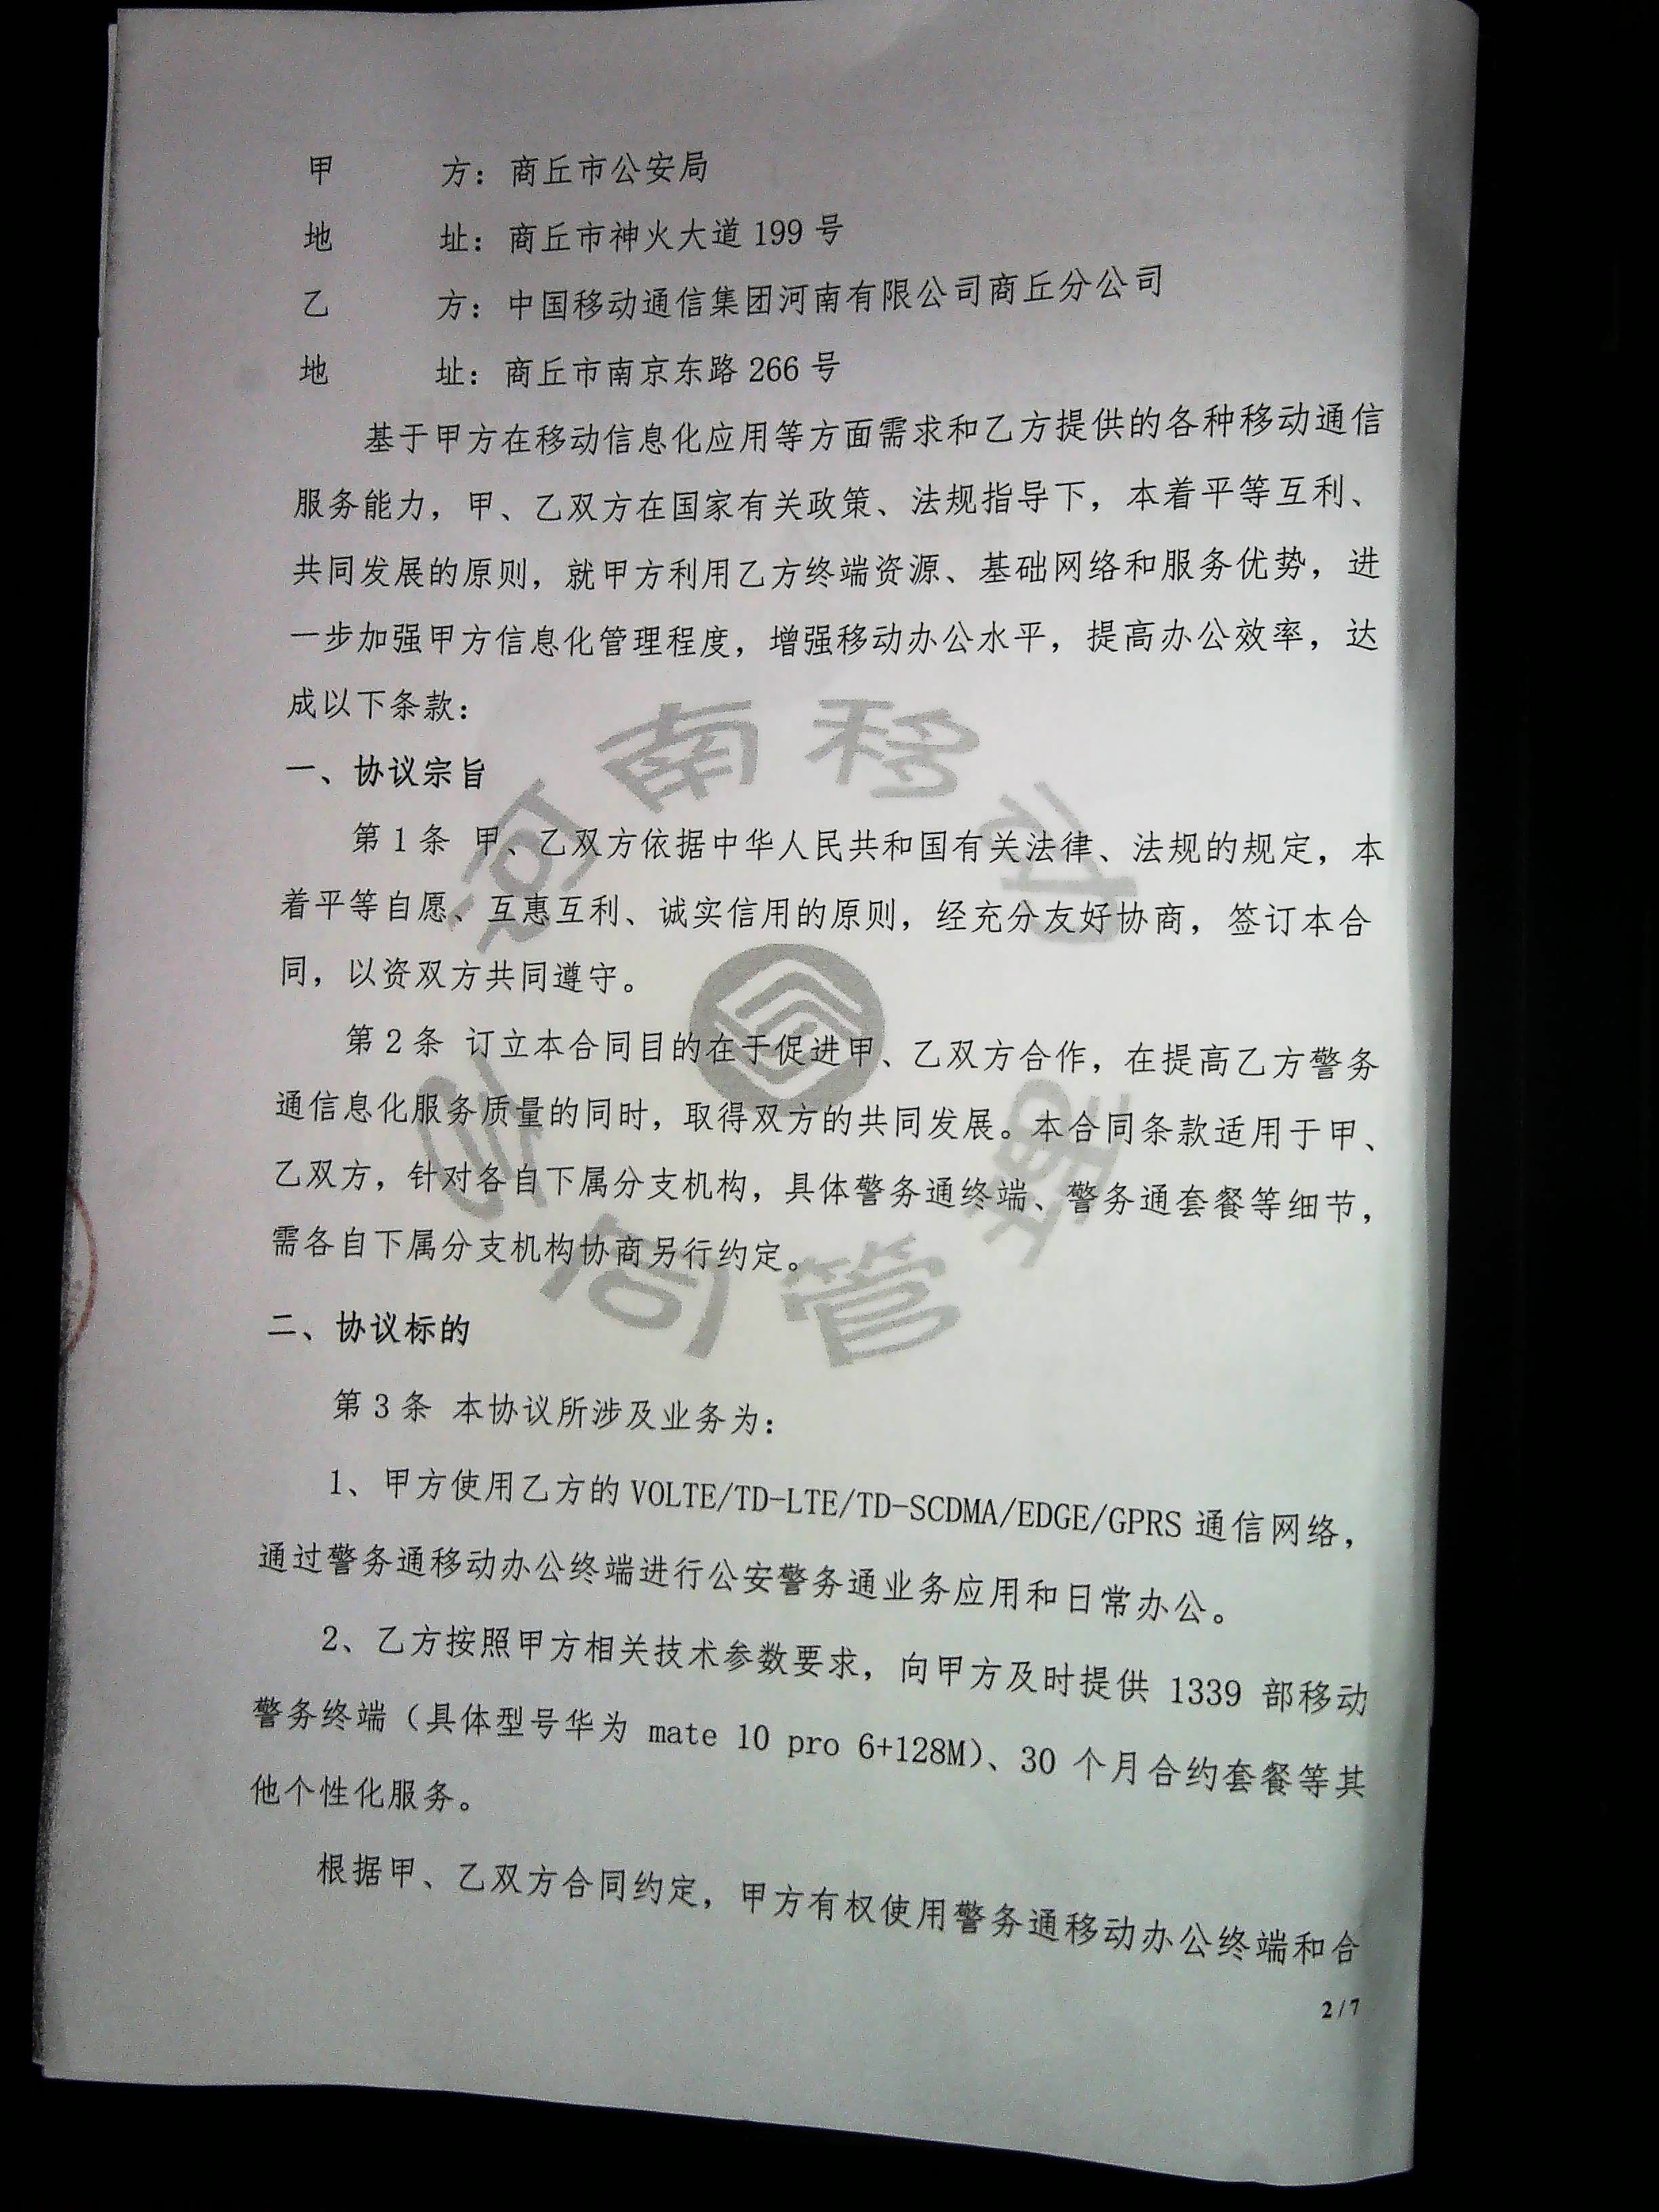 甲 方：商丘市公安局
地 址：商丘市神火大道 199 号
乙 方：中国移动通信集团河南有限公司商丘分公司
地 址：商丘市南京东路 266 号
基于甲方在移动信息化应用等方面需求和乙方提供的各种移动通信
服务能力，甲、乙双方在国家有关政策、法规指导下，本着平等互利、
共同发展的原则，就甲方利用乙方终端资源、基础网络和服务优势，进
一步加强甲方信息化管理程度，增强移动办公水平，提高办公效率，达
成以下条款：
一、协议宗旨
第 1 条 甲、乙双方依据中华人民共和国有关法律、法规的规定，本
着平等自愿、互惠互利、诚实信用的原则，经充分友好协商，签订本合
同，以资双方共同遵守。
第 2 条 订立本合同目的在于促进甲、乙双方合作，在提高乙方警务
通信息化服务质量的同时，取得双方的共同发展。本合同条款适用于甲、
乙双方，针对各自下属分支机构，具体警务通终端、警务通套餐等细节，
需各自下属分支机构协商另行约定。
二、协议标的
第 3 条 本协议所涉及业务为：
1、甲方使用乙方的 VOLTE/TD-LTE/TD-SCDMA/EDGE/GPRS 通信网络，
通过警务通移动办公终端进行公安警务通业务应用和日常办公。
2、乙方按照甲方相关技术参数要求，向甲方及时提供 1339 部移动
警务终端（具体型号华为 mate 10 pro 6+128M）、30 个月合约套餐等其
他个性化服务。
根据甲、乙双方合同约定，甲方有权使用警务通移动办公终端和合
2/7
河南移动
合同管理